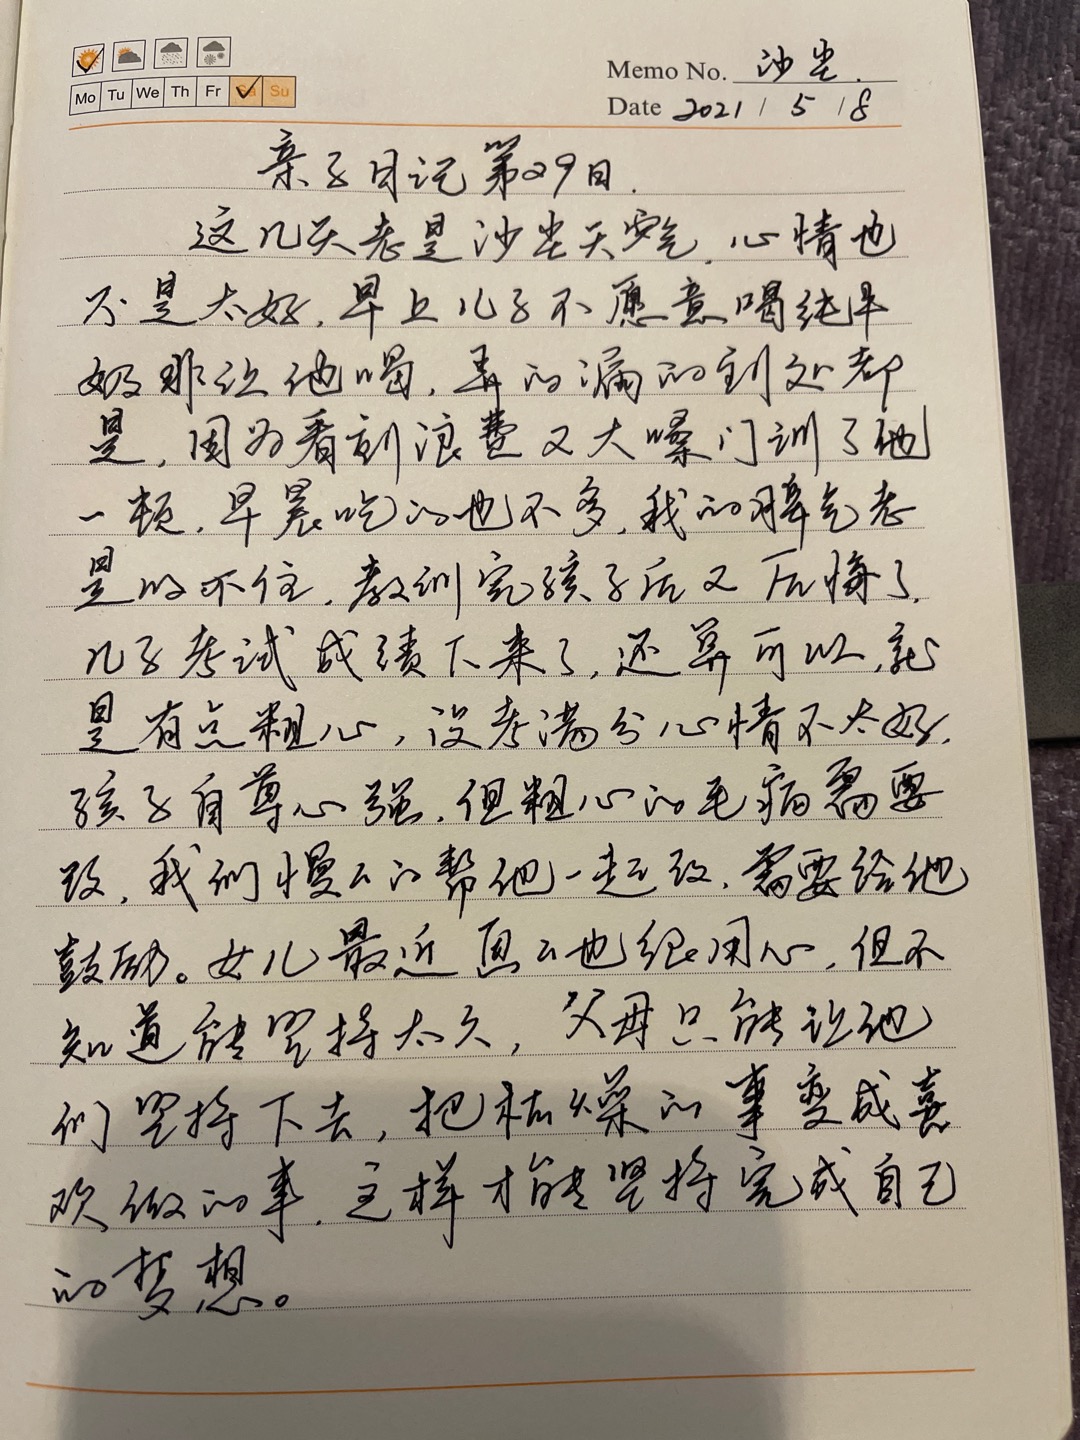 Memo No. 沙尘.
Mo Tu We Th Fr Sa Su
Date 2021 / 5 / 8
亲子日记第29日.
这几天老是沙尘天气,心情也
不是太好,早上儿子不愿意喝纯牛
奶非让他喝,弄的漏的到处都
是,因为看到浪费又大嗓门训了他
一顿,早晨吃的也不多,我的脾气老
是收不住,教训完孩子后又后悔了,
儿子考试成绩下来了,还算可以,就
是有点粗心,没考满分心情不太好,
孩子自尊心强,但粗心的毛病需要
改,我们慢々的帮他一起改,需要给他
鼓励。女儿最近画々也很用心,但不
知道能坚持太久,父母只能让他
们坚持下去,把枯燥的事变成喜
欢做的事,这样才能坚持完成自己
的梦想。